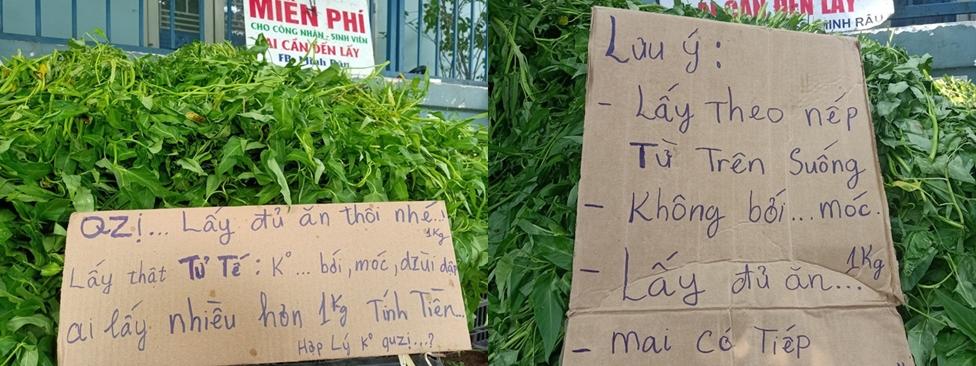 MIỄN PHÍ
CHO CÔNG NHÂN - SINH VIÊN
AI CẦN ĐẾN LẤY
FB: Minh Râu
QZị... Lấy đủ ăn thôi nhé..!
1Kg
Lấy thật Tử Tế: K°... bới, móc, dzùi dập
ai lấy nhiều hơn 1Kg Tính Tiền...
Hợp Lý K° quzị...?
AI CẦN ĐẾN LẤY
MINH RÂU
Lưu ý:
- Lấy Theo nếp
Từ Trên Suống
- Không bới... móc.
- Lấy đủ ăn... 1Kg
- mai có Tiếp